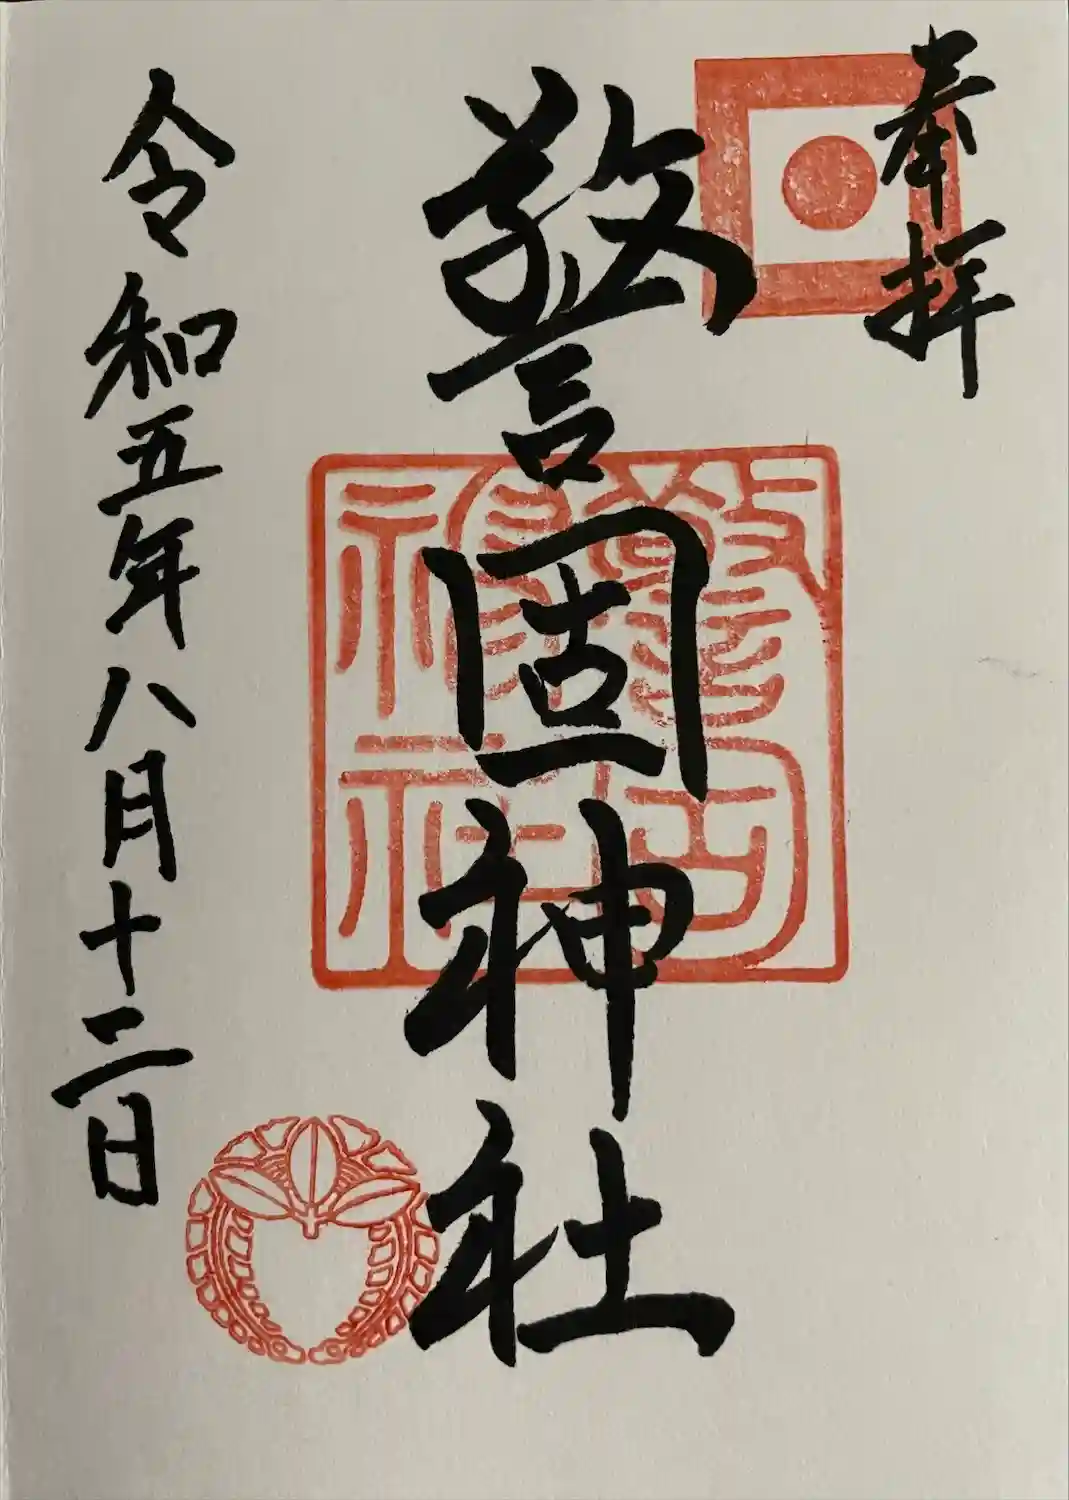 奉拝
警固神社
警固神社
令和五年八月十二日